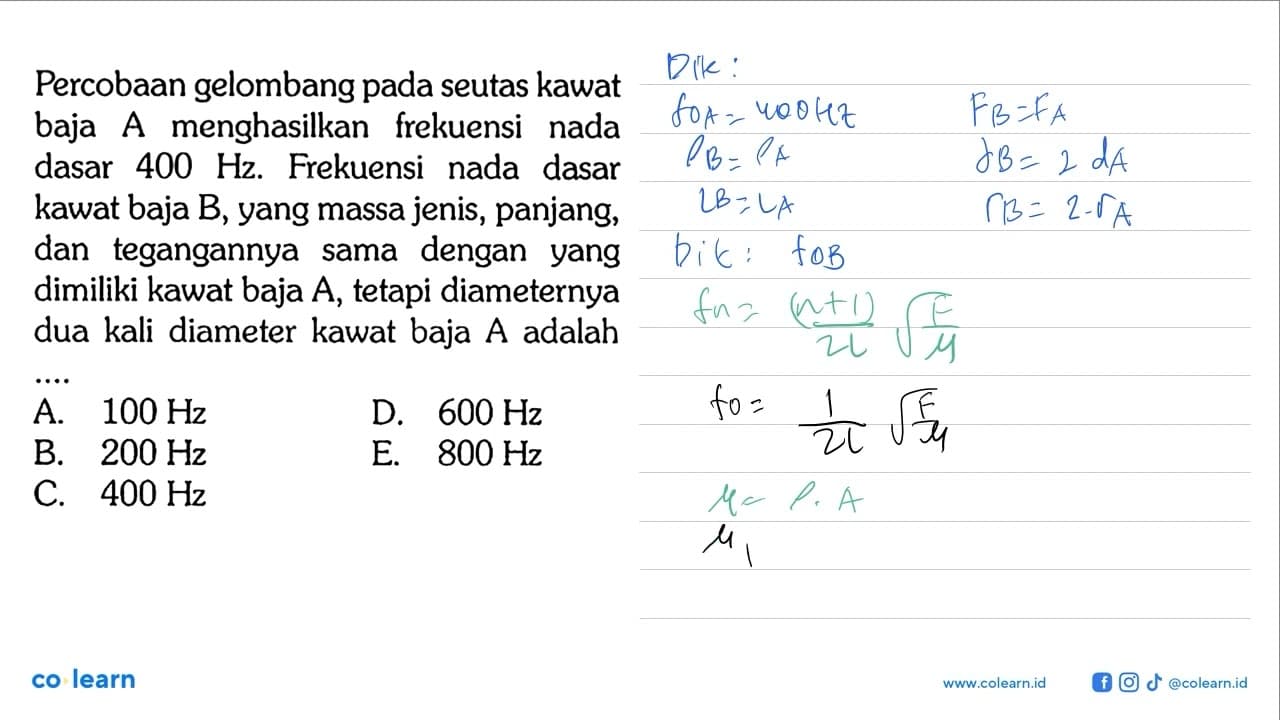 Percobaan gelombang pada seutas kawat
baja A menghasilkan frekuensi nada
dasar 400 Hz. Frekuensi nada dasar
kawat baja B, yang massa jenis, panjang,
dan tegangannya sama dengan yang
dimiliki kawat baja A, tetapi diameternya
dua kali diameter kawat baja A adalah
....
A. 100 Hz D. 600 Hz
B. 200 Hz E. 800 Hz
C. 400 Hz
Dik :
f0A = 400 Hz FB = FA
ρB = ρA dB = 2 dA
LB = LA rB = 2.rA
Dit : f0B
fn = (n+1)/2L √F/μ
f0 = 1/2L √F/μ
μ = ρ. A
μ
co learn
www.colearn.id @colearn.id